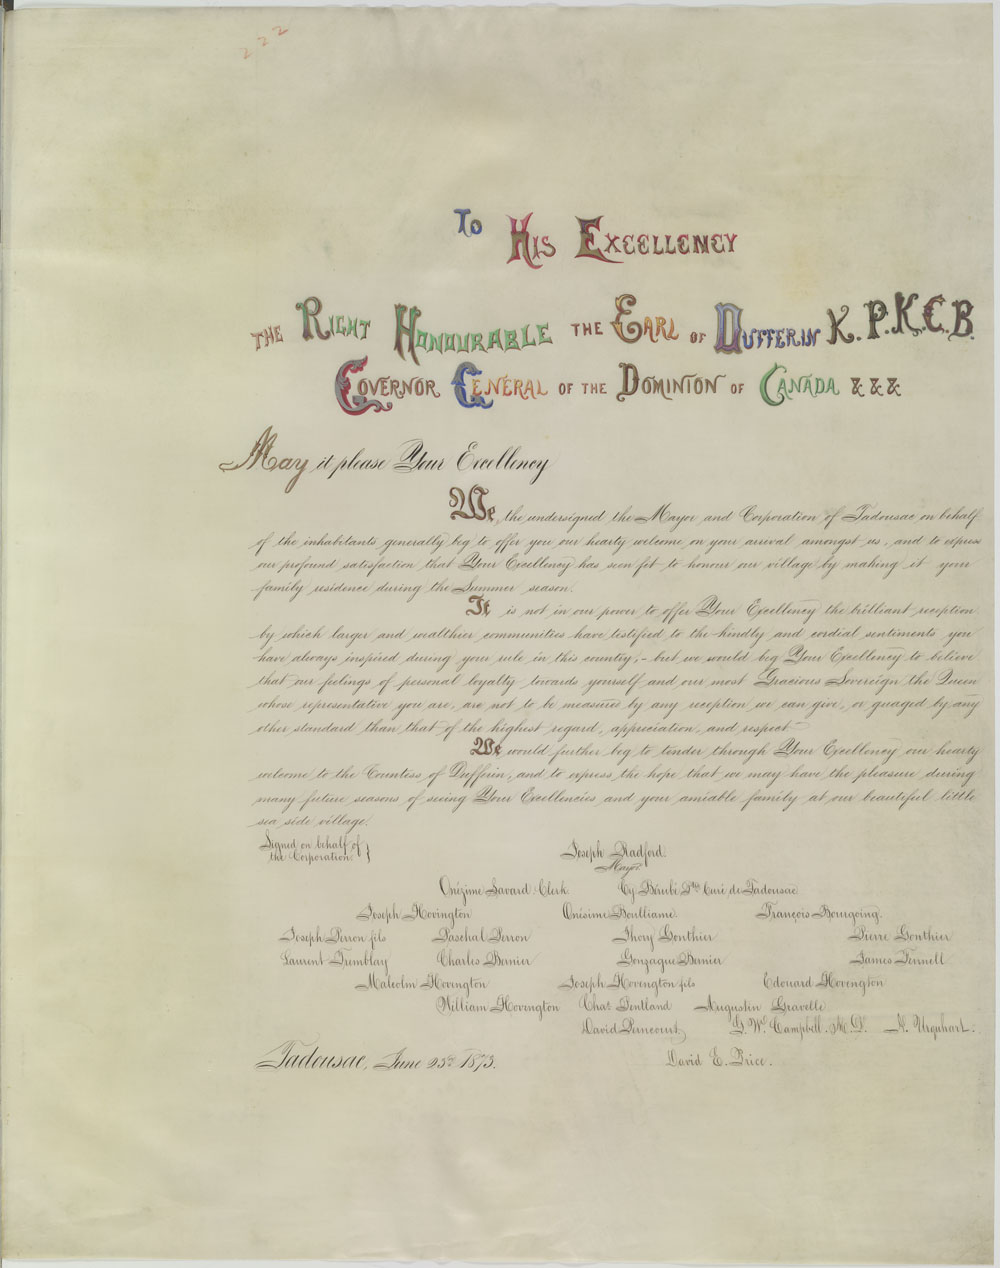 222
To His Excellency
The Right Honourable the Earl of Dufferin K.P.K.C.B.
Governor General of the Dominion of Canada & & &
May it please Your Excellency
We, the undersigned the Mayor and Corporation of Tadousac on behalf
of the inhabitants generally beg to offer you our hearty welcome on your arrival amongst us, and to express
our profound satisfaction that Your Excellency has seen fit to honour our village by making it your
family residence during the Summer season.
It is not in our power to offer Your Excellency the brilliant reception
by which larger and wealthier communities have testified to the kindly and cordial sentiments you
have always inspired during your rule in this country, - but we would beg Your Excellency to believe
that our feelings of personal loyalty towards yourself and our most Gracious Sovereign the Queen
whose representative you are, are not to be measured by any reception we can give, or guaged by any
other standard than that of the highest regard, appreciation, and respect -
We would further beg to tender through Your Excellency our hearty
welcome to the Countess of Dufferin, and to express the hope that we may have the pleasure during
many future seasons of seeing Your Excellencies and your amiable family at our beautiful little
sea side village.
Signed on behalf of
the Corporation. }
Joseph Radford.
Mayor.
Onézime Savard, Clerk. Cy. Bérubé Ptre Curé de Tadousac
Joseph Hovington Onésime Boulliane. François Bourgoing.
Joseph Perron fils Paschal Perron Thory Gonthier Pierre Gonthier
Laurent Tremblay Charles Bernier Gonzague Bernier James Fennell
Malcolm Hovington Joseph Hovington fils Edouard Hovington
William Hovington Chas Pentland Augustin Gravelle
David G. W. Campbell. M.D. N. Urquhart.
Tadousac, June 23rd 1873. David E. Price.